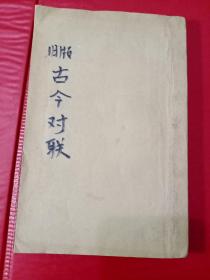 旧版
古今对联